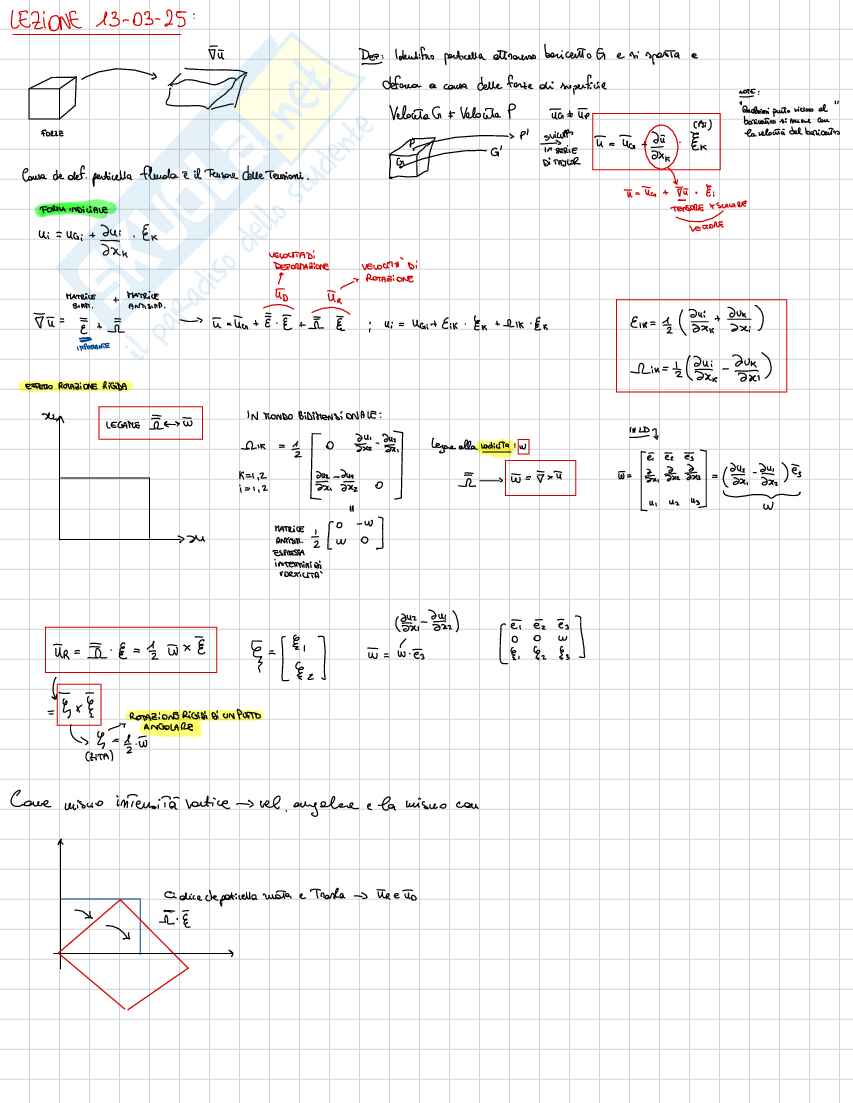 LEZIONE 13-03-25:
∇ū
FORZE
Def: Identifico particella attraverso baricentro G e si sposta e
deforma a causa delle forze di superficie
Velocità G ≠ Velocità P ūG ≠ ūP
G P' G'
SVILUPPO IN SERIE DI TAYLOR
ū = ūG + ∂ū/∂xK · ξ̄K (PSI)
NOTE:
"Qualsiasi punto vicino al
baricentro si muove con
la velocità del baricentro"
ū = ūG + ∇ū · ξ̄i
TENSORE + SCALARE
VETTORE
Causa de def. particella fluida è il Tensore delle Tensioni.
FORMA INDICIALE
ui = uGi + ∂ui/∂xK · ξK
VELOCITÀ DI DEFORMAZIONE
VELOCITÀ DI ROTAZIONE
ūD ūR
MATRICE SIMM. + MATRICE ANTISIMM.
∇ū = Ē + Ω̄ → ū = ūG + Ē · ξ̄ + Ω̄ ξ̄ ; ui = uGi + EiK · ξK + ΩiK · ξK
EiK = 1/2 (∂ui/∂xK + ∂uK/∂xi)
ΩiK = 1/2 (∂ui/∂xK - ∂uK/∂xi)
EFFETTO ROTAZIONE RIGIDA
LEGAME Ω̄ ↔ w̄
IN MONDO BIDIMENSIONALE:
ΩiK = 1/2 [0 ∂u1/∂x2 - ∂u2/∂x1
∂u2/∂x1 - ∂u1/∂x2 0]
K=1,2
i=1,2
=
MATRICE ANTISIM. ESPRESSA IN TERMINI DI VORTICITÀ
1/2 [0 -w
w 0]
Legame alla vorticità: w
Ω̄ → w̄ = ∇ × ū
IN 2D
w̄ = [ē1 ē2 ē3
∂/∂x1 ∂/∂x2 ∂/∂x3
u1 u2 u3] = (∂u2/∂x1 - ∂u1/∂x2) ē3
w
ūR = Ω̄ · ξ = 1/2 w̄ × ξ̄
ξ̄ = [ξ1
ξ2]
(∂u2/∂x1 - ∂u1/∂x2)
w̄ = w·ē3
[ē1 ē2 ē3
0 0 w
ξ1 ξ2 ξ3]
= ζ̄ × ξ̄
ROTAZIONE RIGIDA DI UN PUNTO
ANGOLARE
ζ = 1/2 · w̄
(ZITA)
Come misuro intensità vortice → vel. angolare e la misuro con
Ci dice che particella ruota e trasla → ūR e ūD
Ω̄ · ξ̄